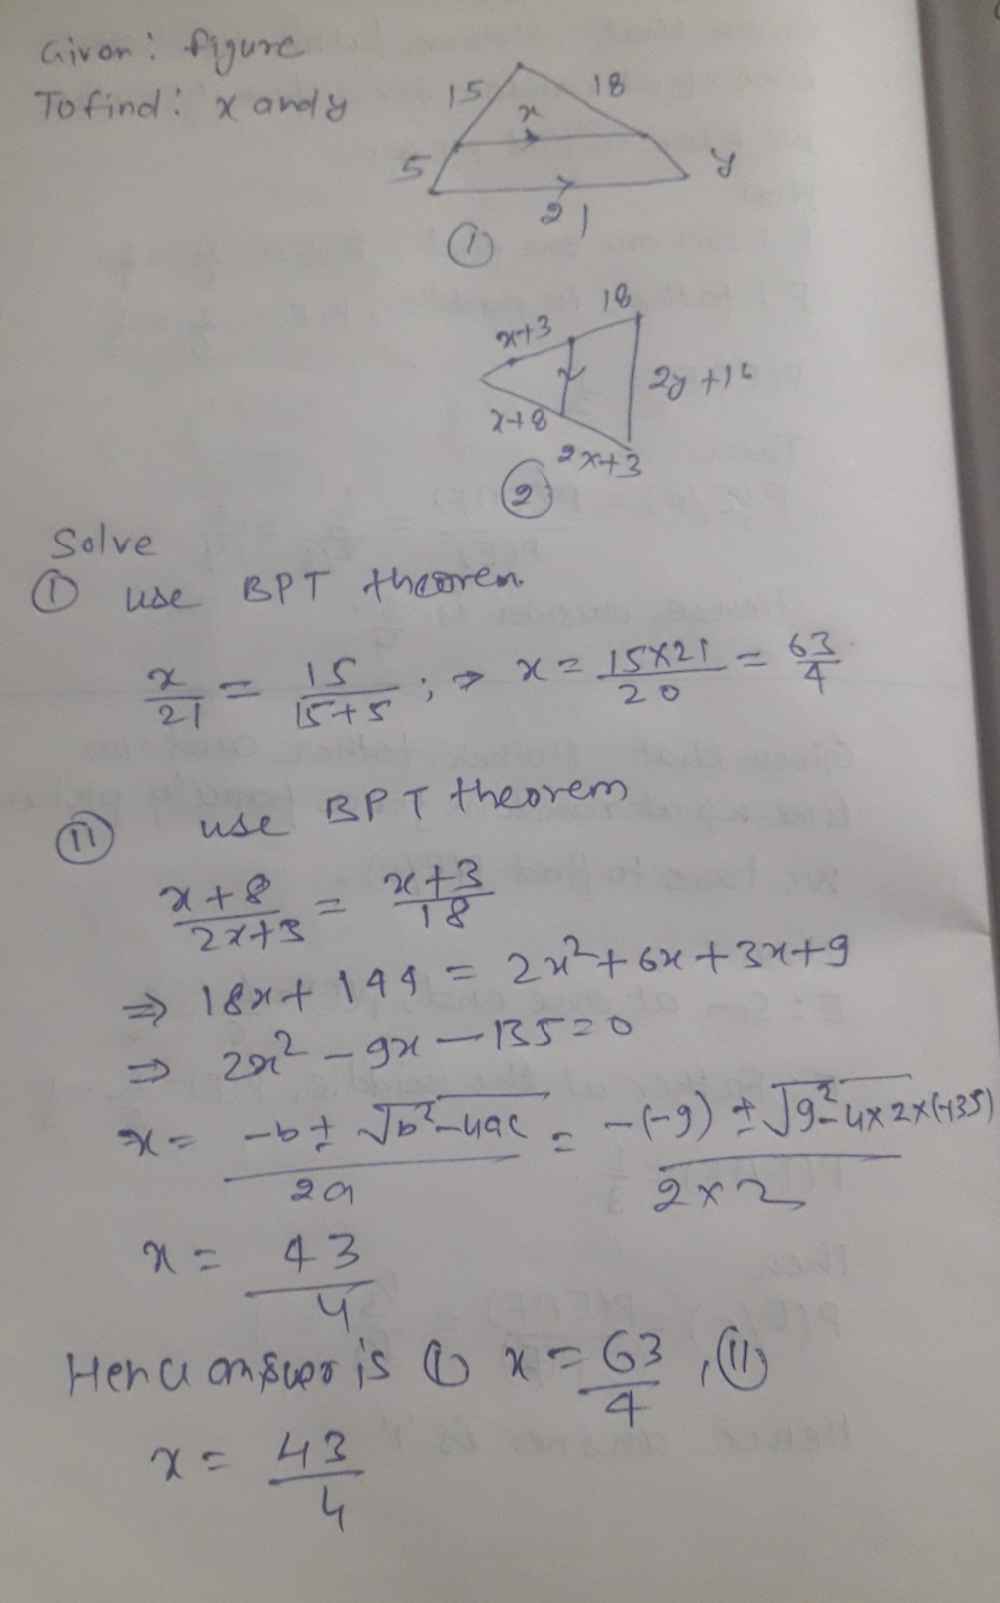 Given: figure
To find: x and y
15 18
x
5 y
21
①
18
x+3
2y +1
x+8
2x+3
②
Solve
① use BPT theorem
x/21 = 15/15+5 ; ⇒ x = 15×21/20 = 63/4
⑪ use BPT theorem
x+8/2x+3 = x+3/18
⇒ 18x + 144 = 2x² + 6x + 3x + 9
⇒ 2x² - 9x - 135 = 0
x = -b ± √b²-4ac / 2a = -(-9) ± √9²-4×2×(-135) / 2×2
x = 43/4
Hence answer is ① x = 63/4 , ⑪
x = 43/4